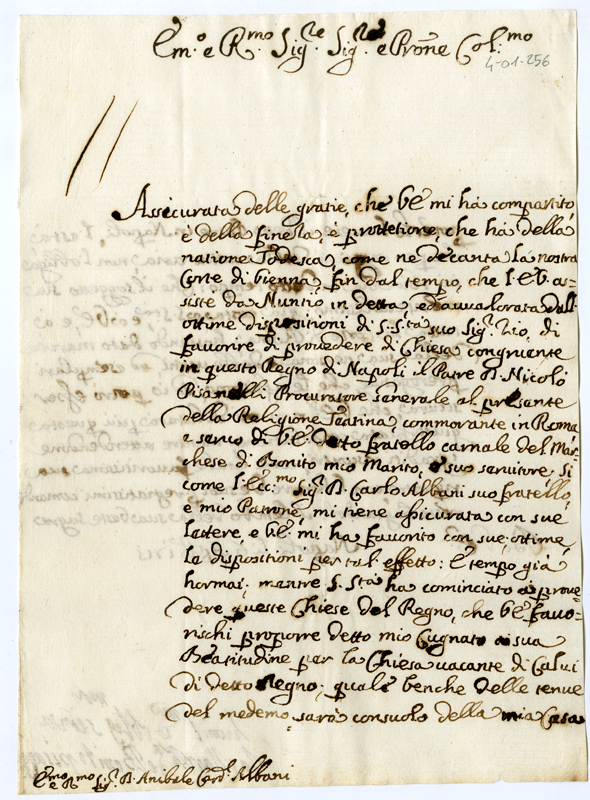 Em.o e R.mo Sig.re Sig.re e Prōne Col.mo
4-01-256
Assicurata delle gratie, che V.E. mi hà compartito
è della finezza, è protettione, che hà della
natione Todesca, come ne decanta la nostra
Corte di Vienna, fin dal tempo, che l'E.V. as=
siste da Nuntio in detta, ed avvalorata dall'
ottime dispositioni di S. S.tà suo Sig.r Zio, di
favorire di provedere di Chiesa congruente
in questo Regno di Napoli il Patre D. Nicolò
Pisanelli Procuratore Generale al presente
della Religione Teatina, commorante in Roma
e servo di V.E. detto fratello carnale del Mar=
chese di Bonito mio Marito, e suo servitore, si
come l'Ecc.mo Sig.r D. Carlo Albani suo fratello,
e mio Patrone, mi tiene assicurata con sue
lettere, e V.E. mi hà favorito con sue ottime
le dispositioni per tal effetto: È tempo già
hormai, mentre S. S.tà hà cominciato à prove=
dere queste Chiese del Regno, che V.E. favo=
rischi proporre detto mio Cugnato à sua
Beatitudine per la Chiesa vacante di Calvi
di detto Regno; quale benche delle tenue
del medemo, sarà consuolo della mia Casa
Em.mo e R.mo Sig.r D. Anibale Card.l Albani